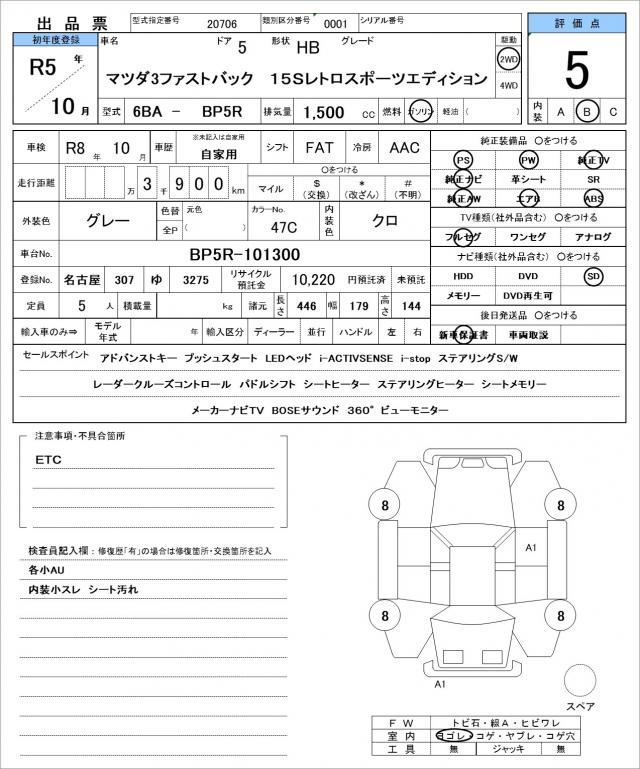 出品票 型式指定番号 20706 類別区分番号 0001 シリアル番号
評価点
初年度登録 車名 ドア 5 形状 HB グレード 駆動
R5 年 マツダ3ファストバック 15Sレトロスポーツエディション 2WD 5
4WD
10 月 型式 6BA － BP5R 排気量 1,500 cc 燃料 ガソリン 軽油 ( ) 内装 A B C
車検 R8 年 10 月 車歴 ※未記入は自家用 自家用 シフト FAT 冷房 AAC
純正装備品 〇をつける
PS PW 純正TV
走行距離 万 3 千 9 0 0 km 〇をつける マイル $ (交換) * (改ざん) # (不明)
純正ナビ 革シート SR
純正AW エアB ABS
外装色 グレー 色替 元色 全P ( ) カラーNo. 47C 内装色 クロ
TV種類(社外品含む) 〇をつける
フルセグ ワンセグ アナログ
車台No. BP5R-101300
ナビ種類(社外品含む) 〇をつける
登録No. 名古屋 307 ゆ 3275 リサイクル預託金 10,220 円預託済 未預託
HDD DVD SD
定員 5 人 積載量 kg 諸元 長さ 446 幅 179 高さ 144
メモリー DVD再生可
後日発送品 〇をつける
輸入車のみ⇒ モデル年式 年 輸入区分 ディーラー 並行 ハンドル 左 右
新車保証書 車両取説
セールスポイント アドバンストキー プッシュスタート LEDヘッド i-ACTIVSENSE i-stop ステアリングS/W
レーダークルーズコントロール パドルシフト シートヒーター ステアリングヒーター シートメモリー
メーカーナビTV BOSEサウンド 360°ビューモニター
注意事項・不具合箇所
ETC
検査員記入欄：修復歴「有」の場合は修復箇所・交換箇所を記入
各小AU
内装小スレ シート汚れ
8 8
A1
8 8
A1
スペア
FW トビ石・線A・ヒビワレ
室内 ヨゴレ・コゲ・ヤブレ・コゲ穴
工具 無 ジャッキ 無